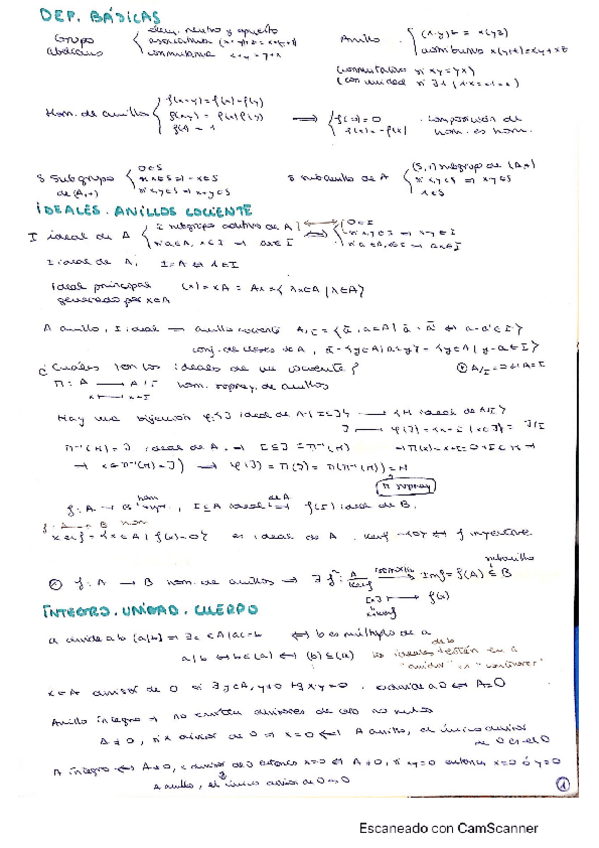 DEF. BÁSICAS
Grupo abeliano { elem. neutro y opuesto
asociativa (x+y)+z = x+(y+z)
conmutativa x+y = y+x
Anillo { (x·y)z = x(yz)
x(y+z)=xy+xz
(conmutativo si xy=yx)
(con unidad si ∃1 / 1·x=x·1=x)
Hom. de anillos { f(x+y)=f(x)+f(y)
f(xy) = f(x)f(y)
f(1) = 1
⟹ { f(0)=0
f(-x)=-f(x)
· composición de hom. es hom.
S subgrupo de (A,+) { 0∈S
x∈S ⟹ -x∈S
si x,y∈S ⟹ x+y∈S
S subanillo de A { (S,+) subgrupo de (A,+)
si x,y∈S ⟹ xy∈S
1∈S
IDEALES. ANILLOS COCIENTE
I ideal de A { I subgrupo aditivo de A
si a∈A, x∈I → ax∈I
⟺ { 0∈I
si x,y∈I → x+y∈I
si a∈A, x∈I → ax∈I
I ideal de A, I=A ⟺ 1∈I
ideal principal generado por x∈A (x)=xA = Ax={λx∈A | λ∈A}
A anillo, I ideal → anillo cociente A/I={ā, a∈A | ā = ā' ⟺ a-a'∈I}
conj. de clases de A, ā={y∈A | y-a∈I}
¿Cuáles son los ideales de un cociente? A/I=0 ⟺ A=I
π: A → A/I hom. supray. de anillos
x → x+I
Hay una biyección φ:{J ideal de A | I⊆J} → {M ideal de A/I}
J → φ(J)={x+I | x∈J}= J/I
π⁻¹(M)=J ideal de A. → I⊆J=π⁻¹(M) → π(x)=x+I=0+I∈M →
→ x∈π⁻¹(M)=J) → φ(J)=π(J)=π(π⁻¹(M))=M
π supray
f: A → B hom supr., I⊆A ideal de A → f(I) ideal de B.
f: A → B hom
Kerf={x∈A | f(x)=0} es ideal de A. Kerf={0} ⟺ f inyectiva
f: A → B hom. de anillos → ∃ f̃: A/Kerf isomorfismo → Imf=f(A)⊆B subanillo
[x] → f(x)
x+Kerf
ÍNTEGRO. UNIDAD. CUERPO
a divide a b (a|b) si ∃c∈A | ac=b ⟺ b es múltiplo de a
a|b ⟺ b∈(a) ⟺ (b)⊆(a)
"contener"
x∈A divisor de 0 si ∃y∈A, y≠0 tq xy=0. ⟺ A=0
Anillo íntegro → no existen divisores de cero no nulos
A≠0, si x divisor de 0 ⟹ x=0 ⟺ A anillo, el único divisor de 0 es el 0
A íntegro ⟺ A≠0, x divisor de 0 entonces x=0 ⟺ A≠0, si xy=0 entonces x=0 ó y=0
A anillo, el único divisor de 0 es 0
1
Escaneado con CamScanner